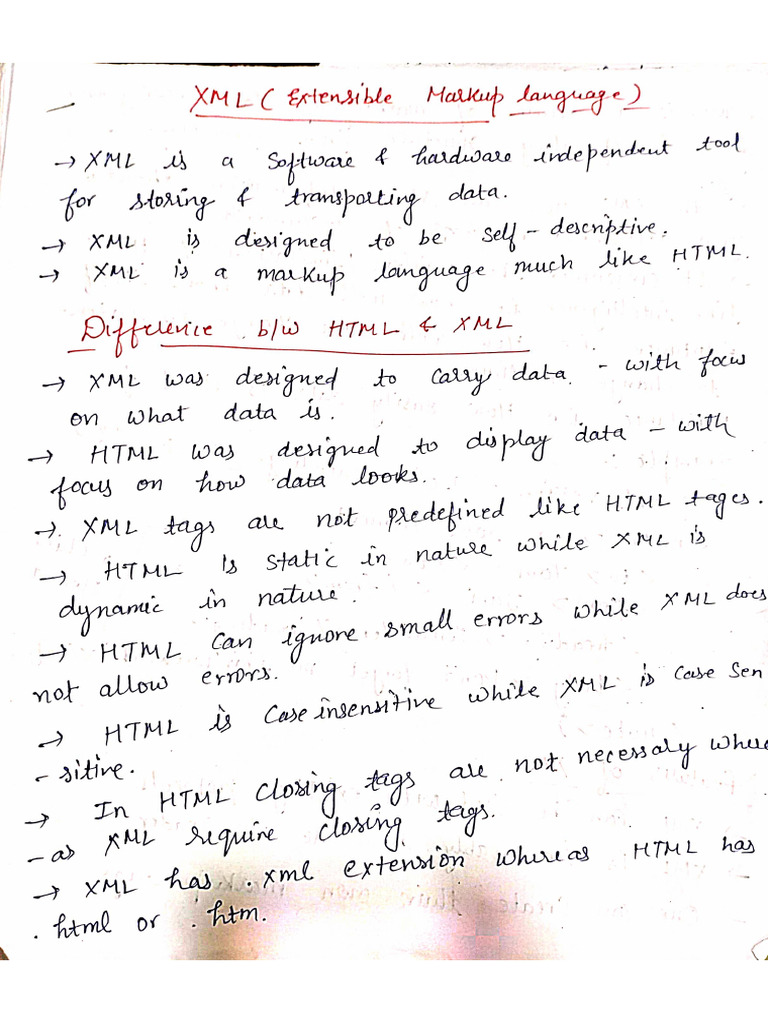 XML ( Extensible Markup language )
→ XML is a software & hardware independent tool
for storing & transporting data.
→ XML is designed to be self-descriptive.
→ XML is a markup language much like HTML.
Difference b/w HTML & XML
→ XML was designed to carry data - with focus
on what data is.
→ HTML was designed to display data - with
focus on how data looks.
→ XML tags are not predefined like HTML tages.
→ HTML is static in nature while XML is
dynamic in nature.
→ HTML can ignore small errors while XML does
not allow errors.
→ HTML is case insensitive while XML is case sen
- sitive.
→ In HTML closing tags are not necessary where
- as XML require closing tags.
→ XML has .xml extension whereas HTML has
.html or .htm.